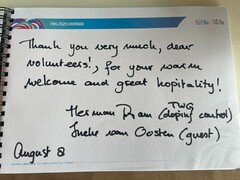 Thank you very much, dear
volunteers!, for your warm
welcome and great hopitality!
Herman Ram TWG (doping control)
Ineke van Oosten (guest)
August 8